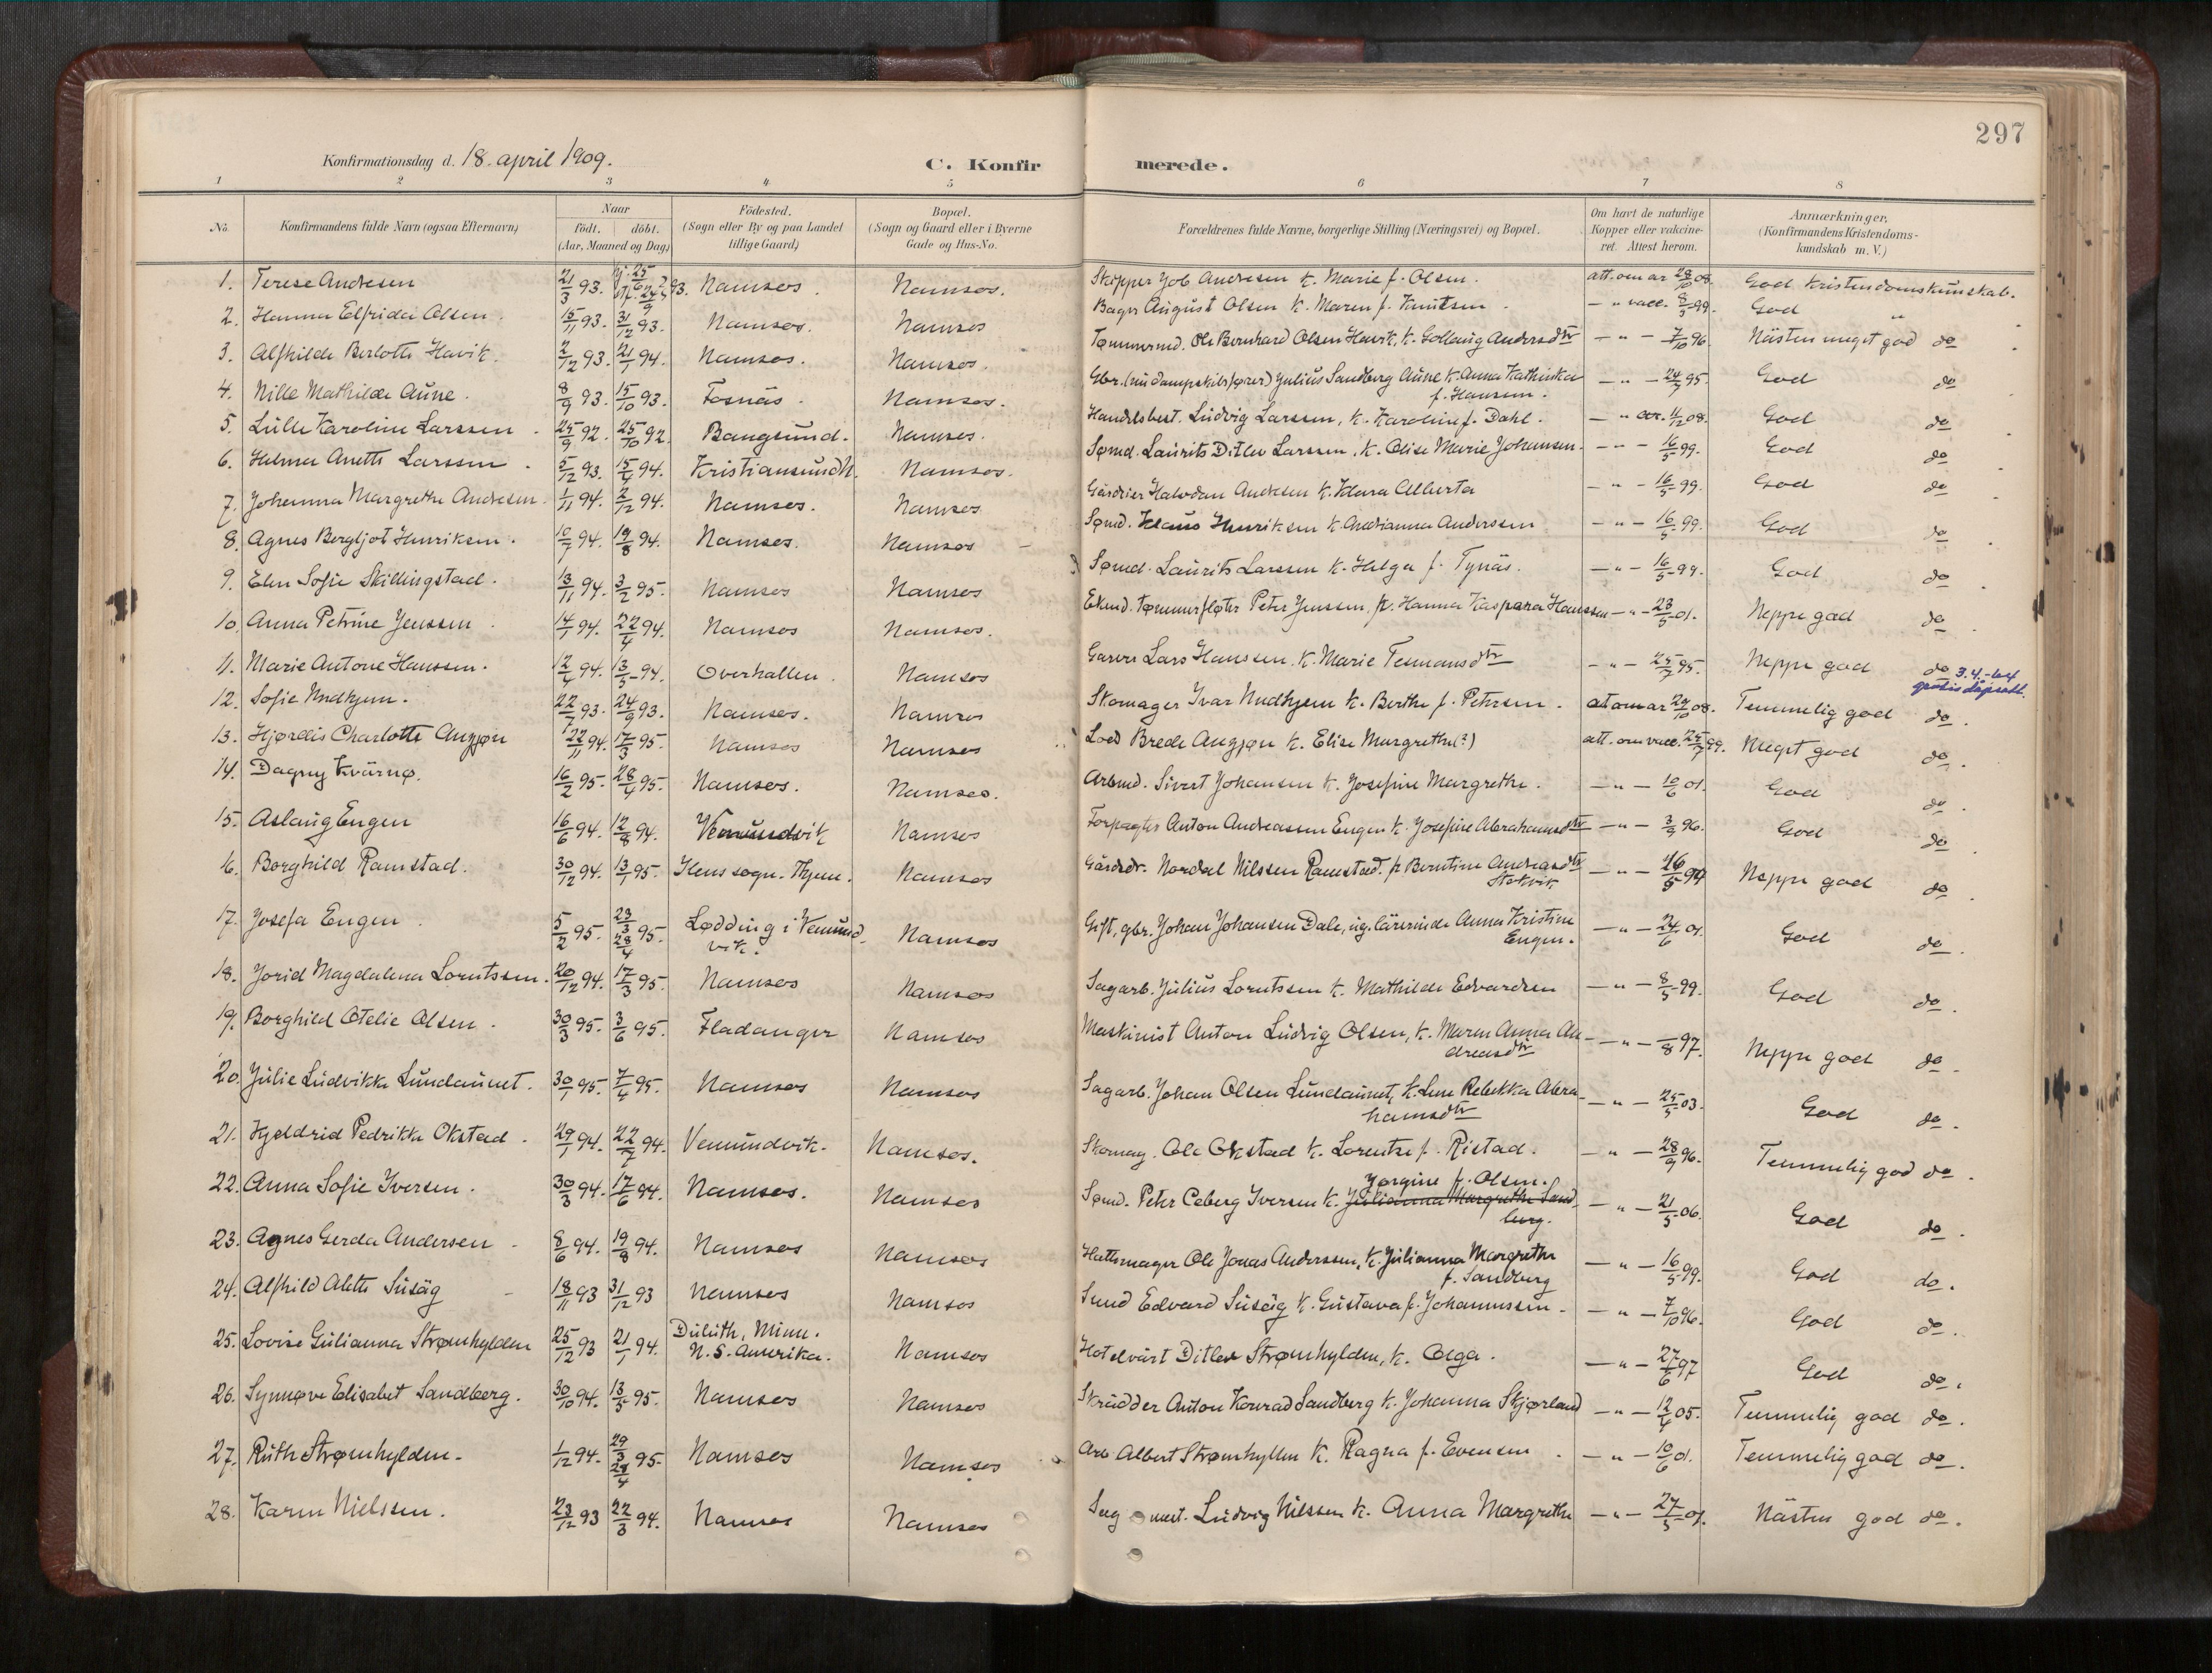 297
Konfirmationsdag d. 18. april 1909. C. Konfirmerede.
1 2 3 4 5 6 7 8
No. Konfirmandens fulde Navn (ogsaa Efternavn) Naar födt. döbt. (Aar, Maaned og Dag) Födested. (Sogn eller By og paa Landet tillige Gaard) Bopæl. (Sogn og Gaard eller i Byerne Gade og Hus-No. Forældrenes fulde Navne, borgerlige Stilling (Næringsvei) og Bopæl. Om havt de naturlige Kopper eller vakcineret. Attest herom. Anmærkninger. (Konfirmandens Kristendomskundskab m. V.)
1. Terese Andresen 21/3 93. Namsos. Namsos. Skipper Job Andresen k. Marie f. Olsen. att. om ar 28/10 08. God Kristendomskunskab.
2. Hanna Elfrida Olsen. 15/11 93. 31/12 93. Namsos. Namsos Bager August Olsen k. Maren f. Knutsen - " vacc. 8/5 99. God "
3. Alfhilde Berlotte Havik. 2/12 93. 21/1 94. Namsos. Namsos. Tømmermd. Ole Bernhard Olsen Havik, k. Gollaug Andersdtr - " - 7/10 96. Nästen meget god do
4. Nille Mathilde Aune. 8/9 93. 15/10 93. Fosnäs. Namsos. Gbr. (nu dampskibsfører) Julius Sandberg Aune k. Anna Kathinka f. Hansen. - " - 24/7 95. God do
5. Lulle Karoline Larssen. 25/9 92. 25/10 92. Bangsund. Namsos. Handelsbest. Ludvig Larssen, k. Karoline f. Dahl. - " ar. 11/12 08. God do
6. Helma Anette Larssen. 5/12 93. 15/4 94. Kristiansund N. Namsos. Sømd. Laurits Ditlev Larssen, k. Elise Marie Johansen. - " - 16/5 99. God do
7. Johanna Margrethe Andresen. 1/11 94. 2/12 94. Namsos. Namsos Gårdeier Halvdan Andresen k. Klara Alberta - " - 16/5 99. God do
8. Agnes Bergljot Henriksen. 10/7 94. 19/8 94. Namsos. Namsos Sømd. Klaus Henriksen k. Andrianna Anderssen - " - 16/5 99. God do
9. Elen Sofie Skillingstad. 13/11 94. 3/2 95. Namsos Namsos Sømd. Laurits Larssen k. Helga f. Tynäs. - " - 16/5 99. God do
10. Anna Petrine Jenssen. 14/1 94. 22/4 94. Namsos Namsos. Ekmd. tømmerfløter Peter Jenssen, k. Hanna Kaspara Hanssen - " - 23/5 01. Neppe god do
11. Marie Antone Hanssen. 12/4 94. 13/5 94. Overhallen. Namsos Garver Lars Hanssen. k. Marie Tesmansdtr - " - 25/7 95. Neppe god do 3.4.-64 gratis dåpsatt.
12. Sofie Medhjem. 22/7 93. 24/9 93. Namsos. Namsos Skomager Ivar Medhjem k. Berthe f. Petersen. at om ar 29/10 08. Temmelig god do.
13. Hjørdis Charlotte Angjøn 22/11 94. 17/3 95. Namsos Namsos Lods Brede Angjøn k. Elise Margrethe (?) att. om vacc. 25/7 99. Meget god do.
14. Dagny Kvärnø. 16/2 95. 28/4 95. Namsos. Namsos. Arbmd. Sivert Johansen k. Josefine Margrethe. - " - 10/6 01. God do.
15. Aslaug Engen 16/6 94. 12/8 94. Vemundvik Namsos Forpagter Anton Andreassen Engen k. Josefine Abrahamsdtr - " - 3/9 96. God do.
16. Borghild Ramstad. 30/12 94. 13/1 95. Ilens sogn. Thjem. Namsos Gårdsdr. Nordal Nilssen Ramstad. k. Berntine Andreasdtr Stokvik - " - 16/5 99 Neppe god do.
17. Josefa Engen. 5/2 95. 23/3 28/4 95. Lødding i Vemundvik. Namsos Gift, gbr. Johan Johansen Dale, ug. lärerinde Anna Kristine Engen. - " - 24/6 01. God do.
18. Jorid Magdalena Lorntssen. 20/12 94. 17/3 95. Namsos Namsos Sagarb. Julius Lorntssen k. Mathilde Edvardsen - " - 8/5 99. God do.
19. Borghild Otelie Olsen. 30/3 95. 3/6 95. Fladanger Namsos Maskinist Anton Ludvig Olsen, k. Maren Anna Andreasdtr - " - 8 97. Neppe god do.
20. Julie Ludvikke Lundaunet. 30/1 95. 7/4 95. Namsos Namsos Sagarb. Johan Olsen Lundaunet, k. Lene Rebekka Abrahamsdtr - " - 25/5 03. God do.
21. Hjeldrid Pedrikke Okstad. 29/1 94. 22/7 94. Vemundvik. Namsos. Skomag. Ole Okstad k. Lorentse f. Ristad. - " - 28/9 96. Temmelig god do.
22. Anna Sofie Iversen. 30/3 94. 17/6 94. Namsos. Namsos Sømd. Peter Ceberg Iversen k. Jørgine f. Olsen. Julianna Margrethe Sandberg. - " - 21/5 06. God do.
23. Agnes Gerda Andersen 8/6 94. 19/8 94. Namsos Namsos Hattemager Ole Jonas Anderssen, k. Julianna Margrethe f. Sandberg - " - 16/5 99. God do.
24. Alfhild Alette Susäg 18/11 93 31/12 93 Namsos Namsos Sømd Edvard Susäg k. Gustava f. Johannessen. - " - 7/10 96. God do.
25. Lovise Gulianna Strømhylden 25/12 93 21/1 94. Duluth, Minn. N. S. Amerika. Namsos Hotelvärt Ditlev Strømhylden, k. Olga. - " - 27/6 97 God do.
26. Synnøve Elisabet Sandberg. 30/10 94. 13/5 95. Namsos Namsos Skrädder Anton Konrad Sandberg k. Johanna Skjørland - " - 12/4 05. Temmelig god do.
27. Ruth Strømhylden. 1/12 94. 29/3 28/4 95. Namsos Namsos Arb. Albert Strømhyllen k. Ragna f. Evensen. - " - 10/6 01. Temmelig god do.
28. Karen Nielssen. 23/12 93 22/3 94. Namsos Namsos mest. Ludvig Nilssen k. Anna Margrethe - " - 27/5 01. Nästen god do.